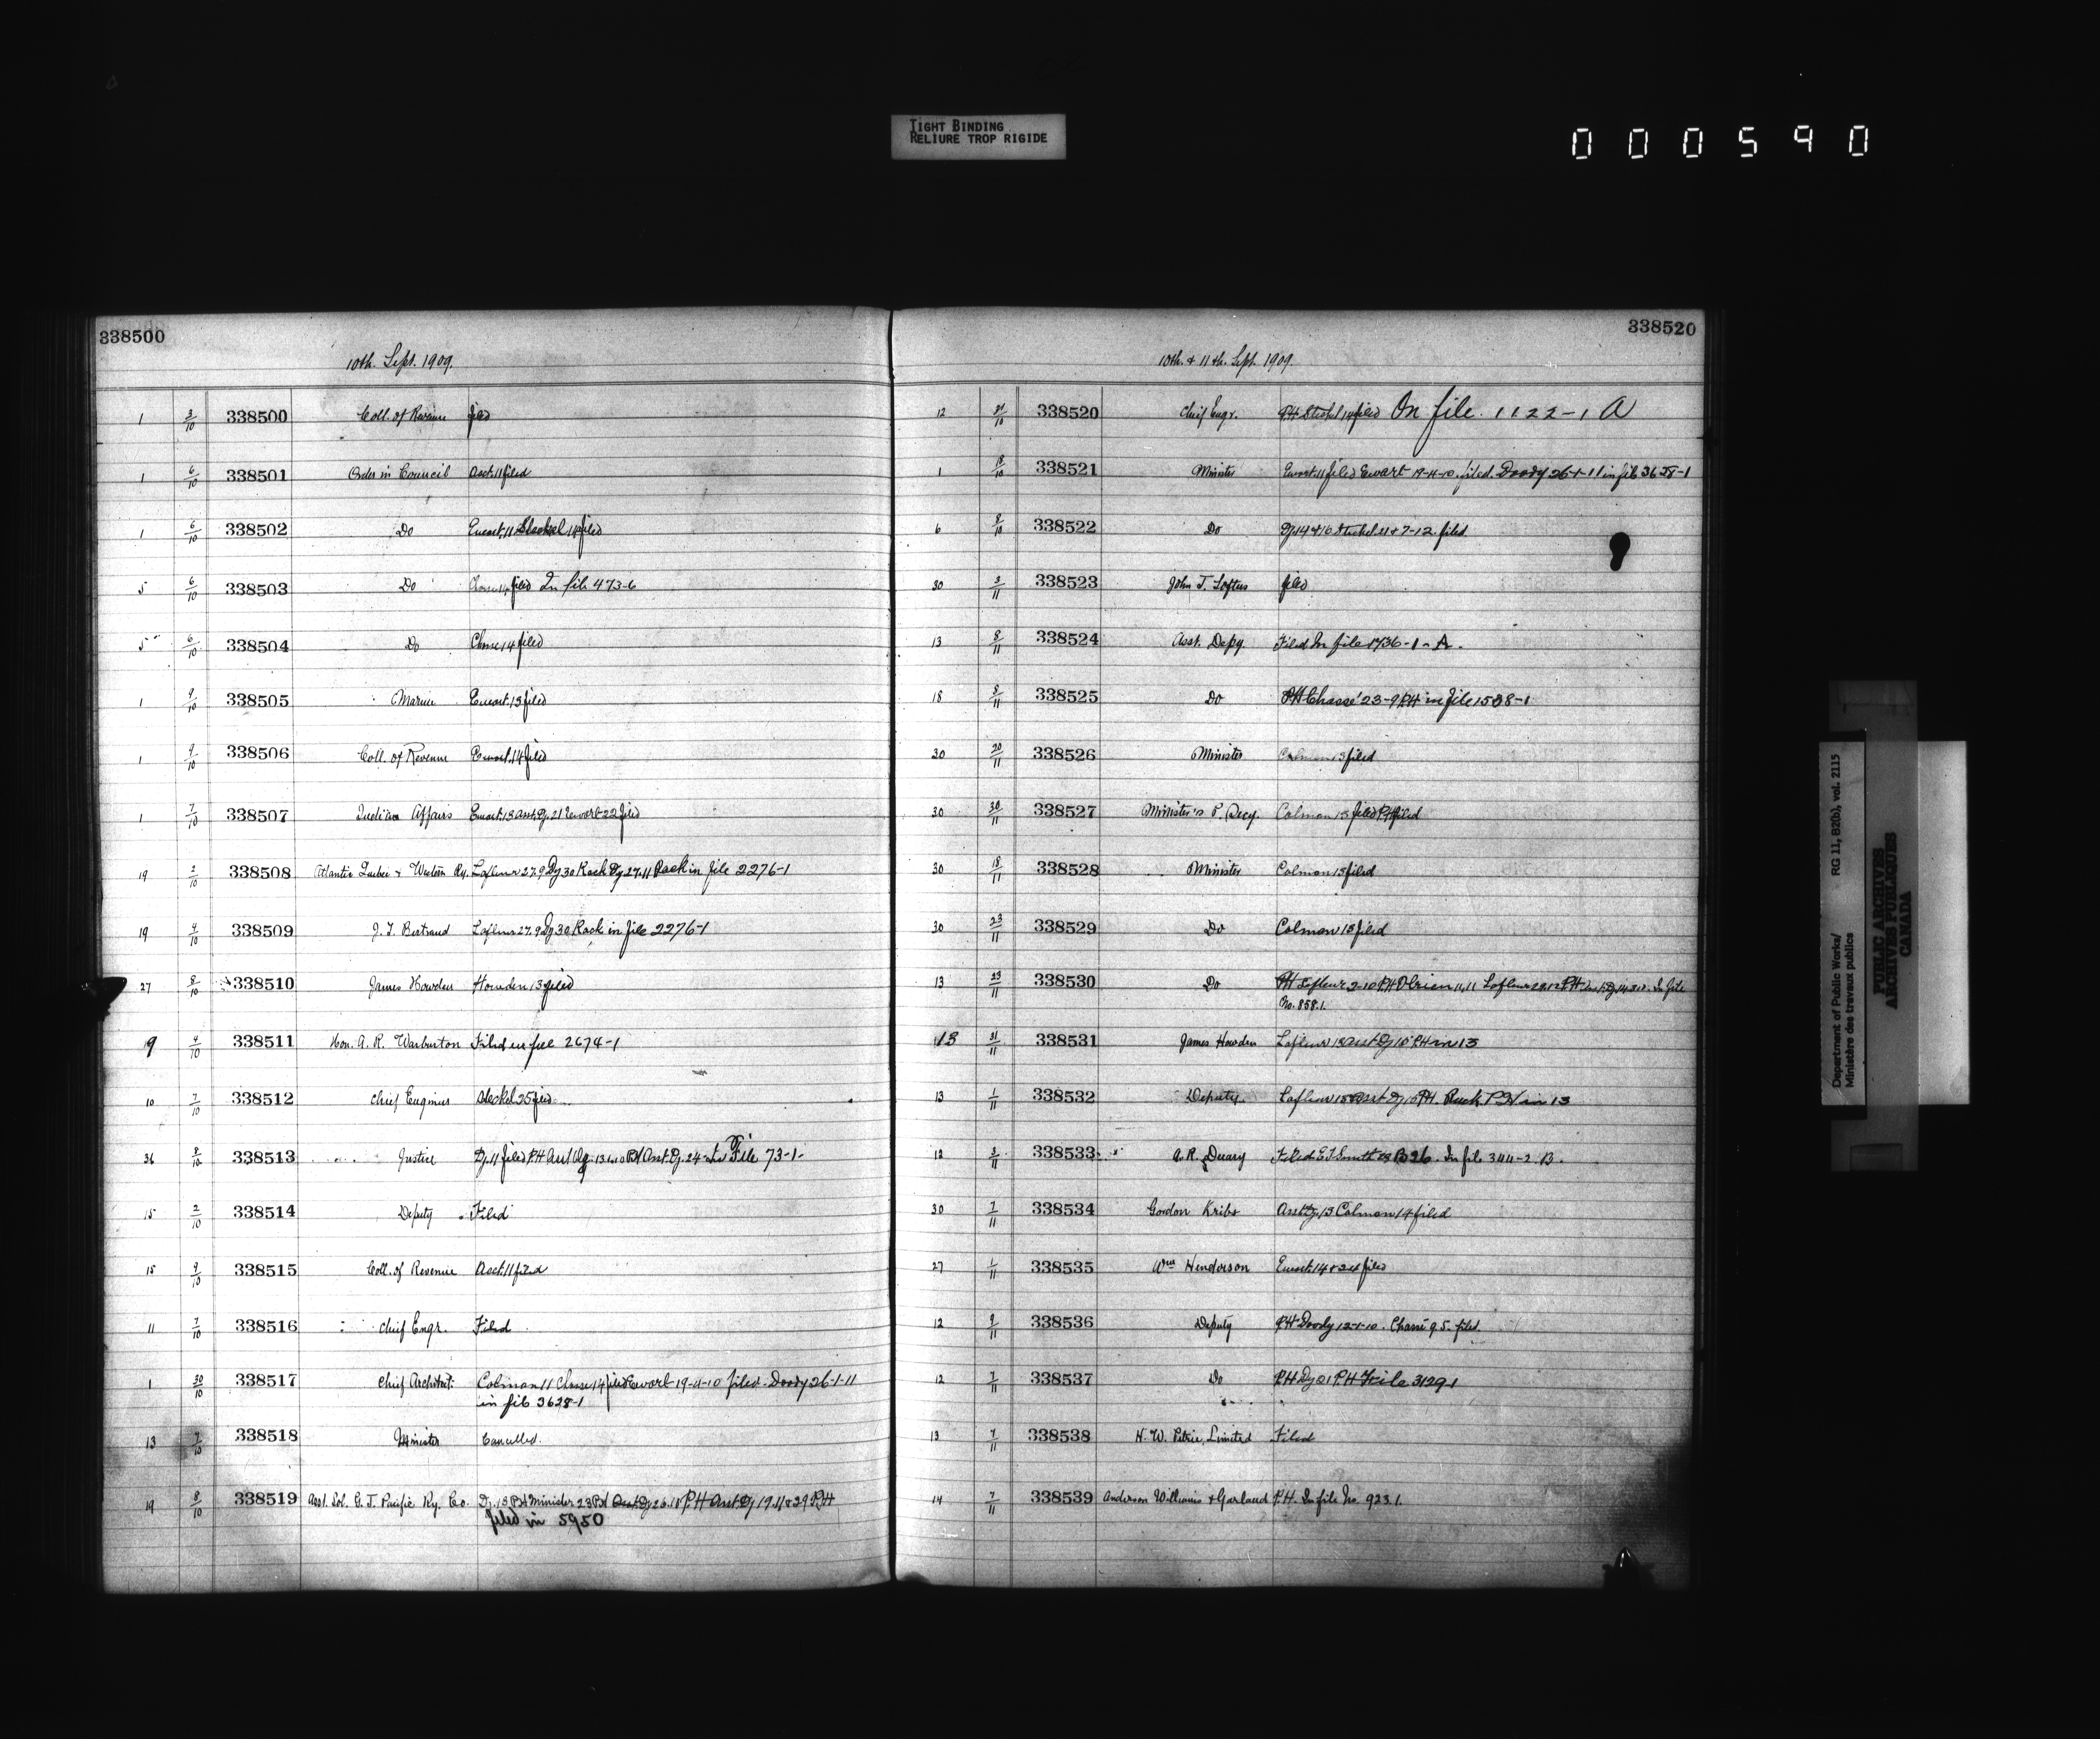 TIGHT BINDING
RELIURE TROP RIGIDE
000590
338500
10th. Sept. 1909.
1 3/10 338500 Coll. of Revenue filed
1 6/10 338501 Order in Council Asst. 11 filed
1 6/10 338502 Do Ewart. 11 Steckel 14 filed
5 6/10 338503 Do filed In file 473-6
5 6/10 338504 Do Chasse 14 filed
1 9/10 338505 Marine Ewart. 13 filed
1 9/10 338506 Coll. of Revenue Ewart. 14 filed
1 7/10 338507 Indian Affairs Ewart. 13 Asst. Dy. 21 Ewart 22 filed
19 2/10 338508 Atlantic Quebec & Western Ry. Lafleur 27.9 Dy 30 Rack Dy 27.11 Rack in file 2276-1
19 4/10 338509 J. T. Bertrand Lafleur 27.9 Dy 30 Rack in file 2276-1
27 8/10 338510 James Howden Howden 13 filed
19 4/10 338511 Hon. A. R. Warburton Filed in file 2674-1
10 7/10 338512 Chief Engineer Steckel 25 filed
36 8/10 338513 Justice Dy. 11 filed P.H Asst. Dy. 24 In File 73-1-
15 2/10 338514 Deputy Filed
15 9/10 338515 Coll. of Revenue Asst. 11 filed
11 7/10 338516 Chief Engr. Filed
1 30/10 338517 Chief Architect. Colman 11 Chasse 14 filed Ewart 19-11-10 filed. Doody 26-1-11
in file 3628-1
13 7/10 338518 Minister Cancelled.
19 8/10 338519 Asst. Sol. G. T. Pacific Ry. Co. Dy. 13 P.H Minister 23 P.H Asst. Dy 26.18 P.H Asst. Dy 19.11 & 29 P.H
filed in 5950
338520
10th. & 11th. Sept. 1909.
12 31/10 338520 Chief Engr. P.H Steckel 14 filed On file. 1122-1 A
1 18/10 338521 Minister Ewart. 11 filed Ewart 19-11-10. filed. Doody 26-1-11 in file 3628-1
6 8/10 338522 Do Dy. 14 & 16 Steckel 21 & 7-12. filed
30 3/11 338523 John T. Loftus filed
13 8/11 338524 Asst. Depy. Filed In file 1736-1-A.
18 8/11 338525 Do P.H Chasse' 23-9 P.H in file 1588-1
30 20/11 338526 Minister Colman 13 filed
30 30/11 338527 Minister's P. Secy. Colman 13 filed P.H filed
30 18/11 338528 Minister Colman 13 filed
30 23/11 338529 Do Colman 13 filed
13 23/11 338530 Do P.H Lafleur 2-10 P.H O'Brien 11.11 Lafleur 29.12 P.H In file
No. 858.1.
13 31/11 338531 James Howden Lafleur 13 Asst. Dy 15 P.H in 13
13 1/11 338532 Deputy. Lafleur 15 Asst Dy 15 P.H. Rack P.H in 13
12 3/11 338533 A. R. Filed E.T. Smith B26. In file 3411-2.B.
30 7/11 338534 Gordon Kribs Asst. Dy. 13 Colman 14 filed
27 1/11 338535 Wm Henderson Ewart. 14 & 24 filed
12 9/11 338536 Deputy P.H Doody 12-1-10. Chassé 9.5. filed.
12 7/11 338537 Do P.H Dy 21 P.H File 3129-1
13 7/11 338538 H. W. Petrie, Limited Filed
14 7/11 338539 Anderson Williams & Garland P.H. In file No. 923.1.
Department of Public Works/
Ministère des travaux publics
RG 11, B2(b), vol. 2115
PUBLIC ARCHIVES
ARCHIVES PUBLIQUES
CANADA